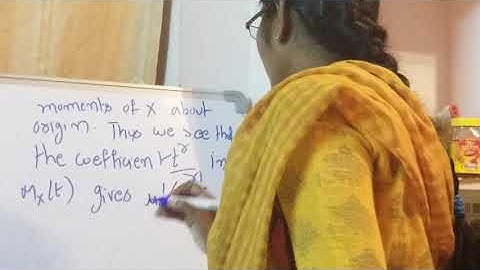 moments of X about
origin. Thus we see tha
the coefficient t^r in
M_X(t) gives